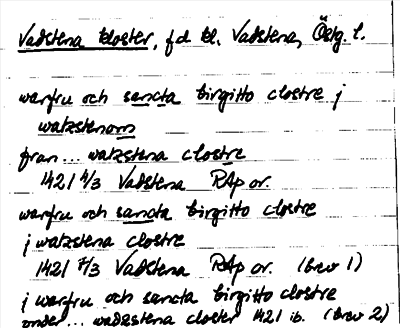 Vadstena kloster, f.d. kl. Vadstena, Östg. l.
warfru och sancta birgitto clostre j
watzstenom
fran... watzstena clostre
1421 4/3 Vadstena RAp or.
warfru och sancta birgitto clostre
j watzstena clostre
1421 7/3 Vadstena RAp or. (brev 1)
j warfru och sancta birgitto clostre
onder... wadzstena closter 1421 ib. (brev 2)